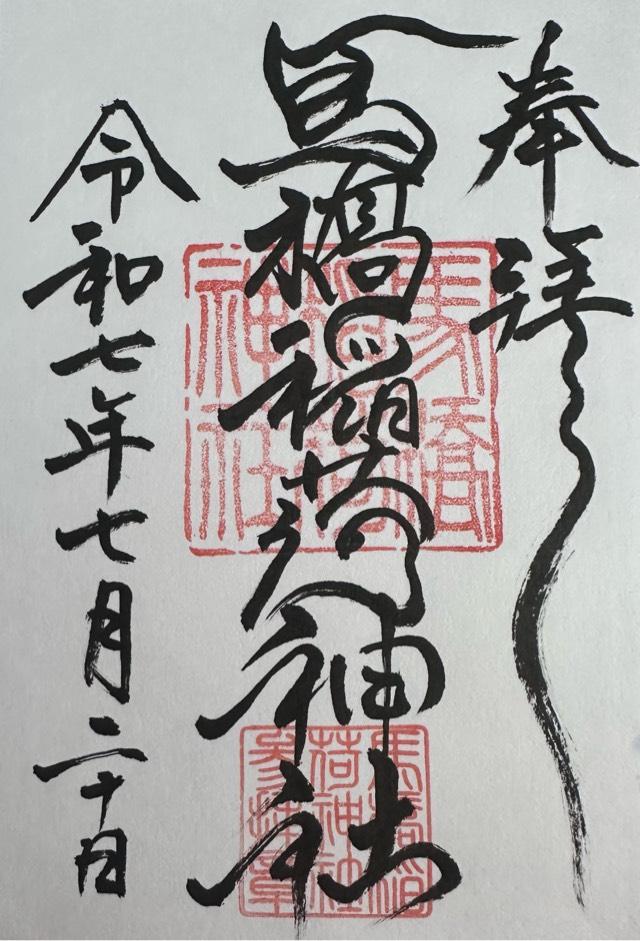 奉拝
馬橋稲荷神社
令和七年七月二十日
馬橋
稲荷
神社
馬橋稲
荷神社
参拝章